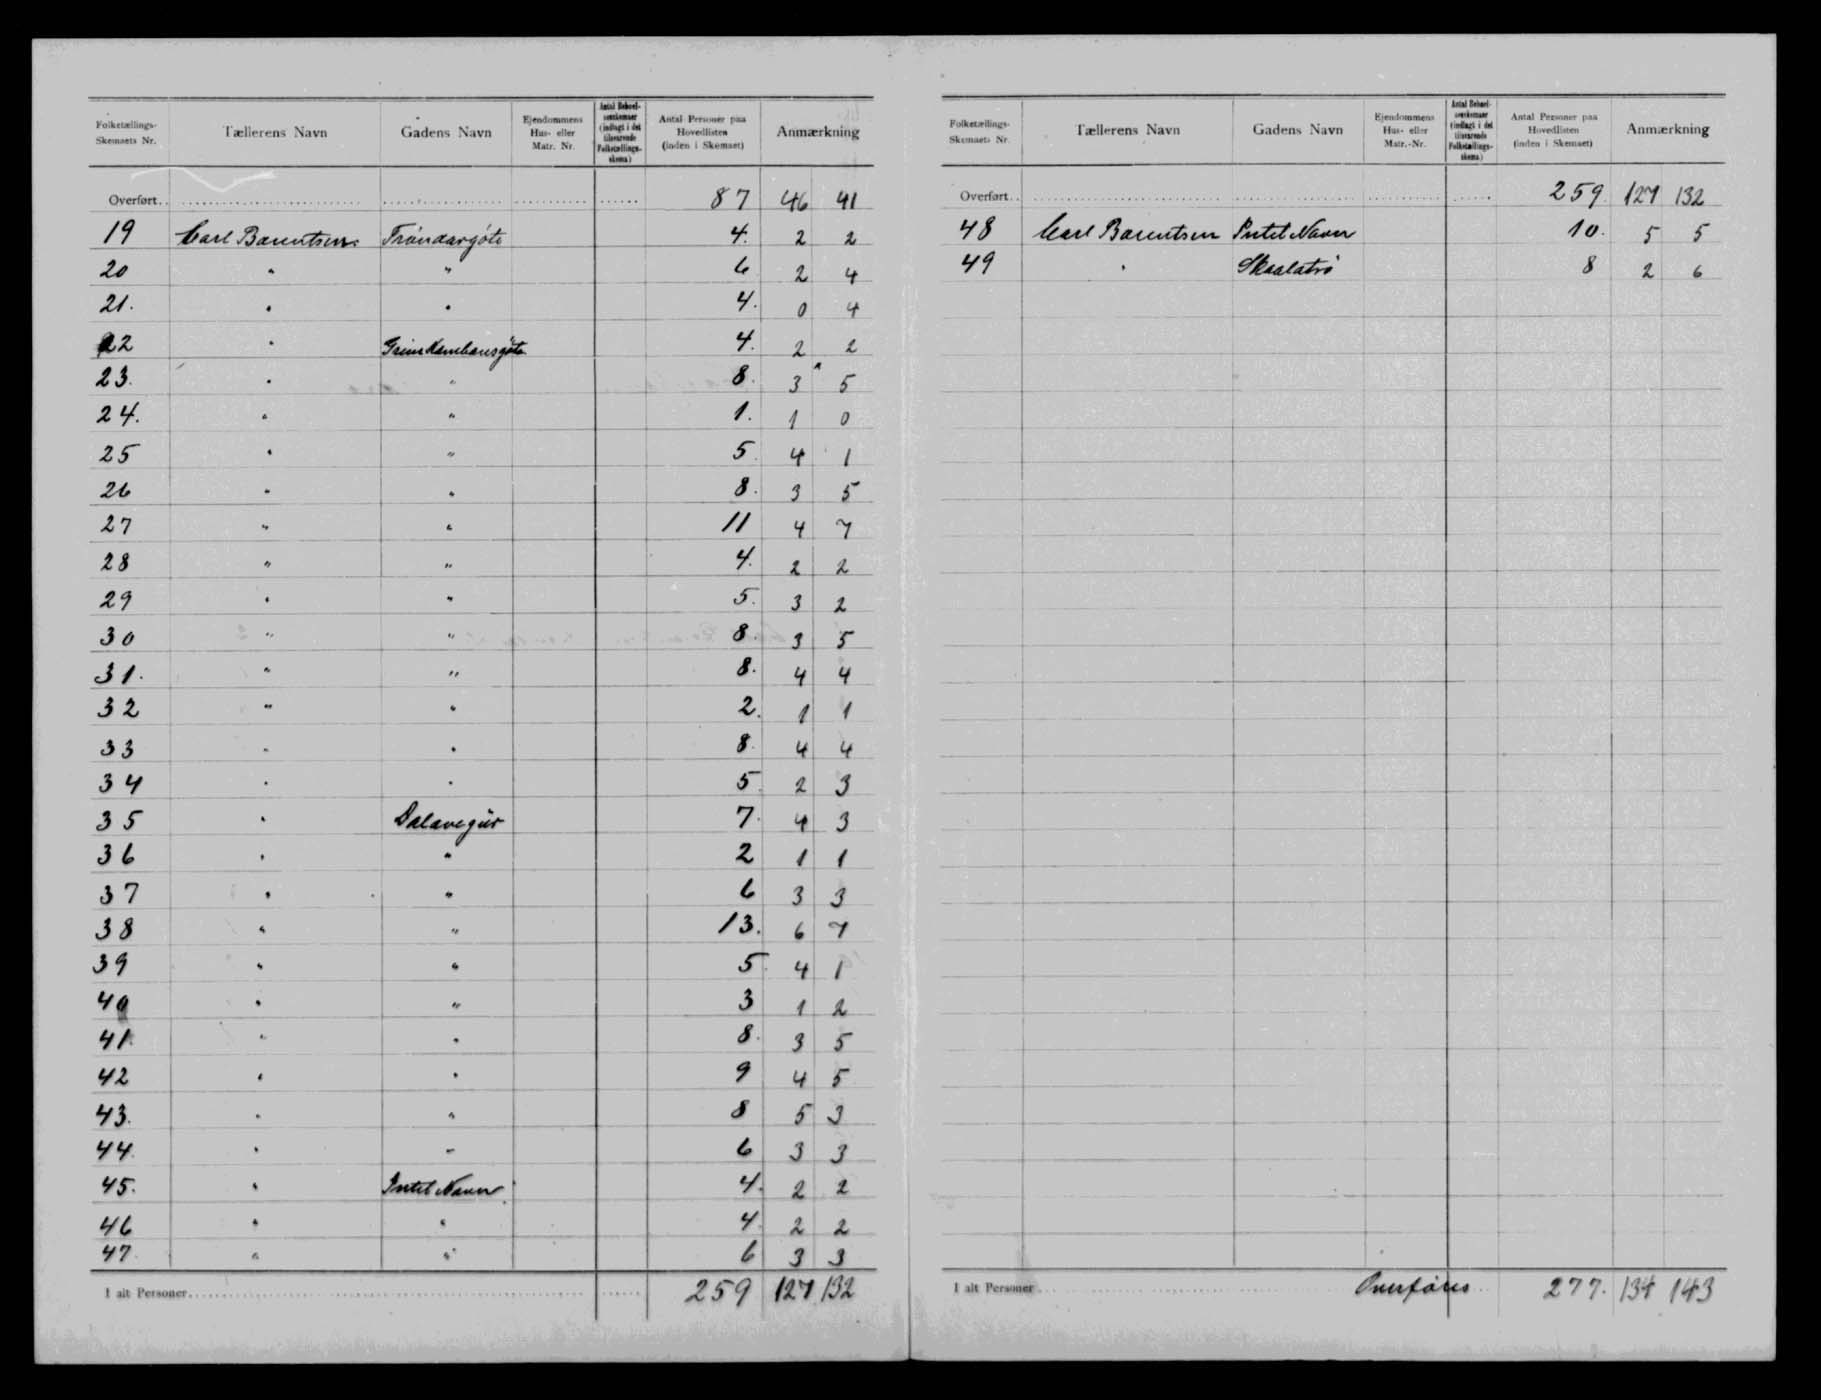 Folketællings-Skemaets Nr. Tællerens Navn Gadens Navn Ejendommens Hus- eller Matr. Nr. Antal Beboelsesskemaer (indlagt i det tilsvarende Folketællings-skema) Antal Personer paa Hovedlisten (inden i Skemaet) Anmærkning
Overført.. 87 46 41
19 Carl Barentsen. Tróndargóte 4. 2 2
20 " " 6 2 4
21. " " 4. 0 4
22 " Grim Kambansgóte 4. 2 2
23. " " 8. 3 5
24. " " 1. 1 0
25 " " 5. 4 1
26 " " 8. 3 5
27 " " 11 4 7
28 " " 4. 2 2
29 " " 5. 3 2
30 " " 8. 3 5
31. " " 8. 4 4
32 " " 2. 1 1
33 " " 8. 4 4
34 " " 5. 2 3
35 " Dalavegur 7. 4 3
36 " " 2 1 1
37 " " 6 3 3
38 " " 13. 6 7
39 " " 5. 4 1
40 " " 3 1 2
41 " " 8. 3 5
42 " " 9 4 5
43. " " 8 5 3
44. " " 6 3 3
45. " Intet Navn 4. 2 2
46 " " 4. 2 2
47. " " 6 3 3
I alt Personer 259 127 132
Folketællings-Skemaets Nr. Tællerens Navn Gadens Navn Ejendommens Hus- eller Matr.-Nr. Antal Beboelsesskemaer (indlagt i det tilsvarende Folketællings-skema) Antal Personer paa Hovedlisten (inden i Skemaet) Anmærkning
Overført.. 259. 127 132
48 Carl Barentsen Intet Navn 10. 5 5
49 " Skaalatrø 8 2 6
I alt Personer Overføres 277. 134 143